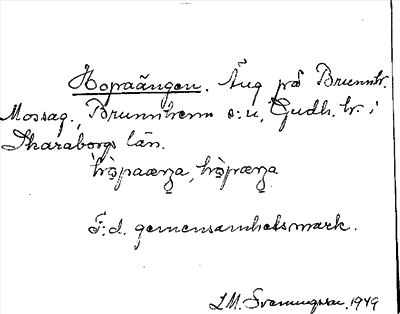 Hopaängen. Äng på Brunnhr.
Mossag., Brunnhem s:n, Gudh. hr. i
Skaraborgs län.
F.d. gemensamhetsmark.
L.M. Svenungsson, 1949